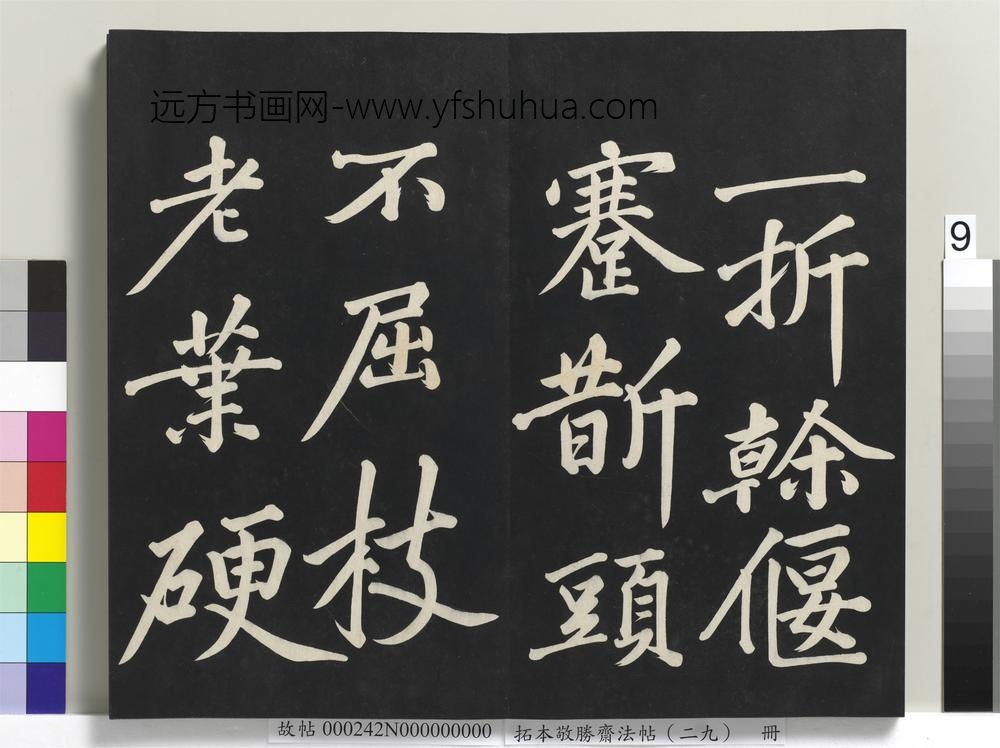 远方书画网-www.yfshuhua.com
一折榦偃
蹇斮頭
不屈枝
老葉硬
9
故帖 000242N000000000
拓本敬勝齋法帖（二九） 冊